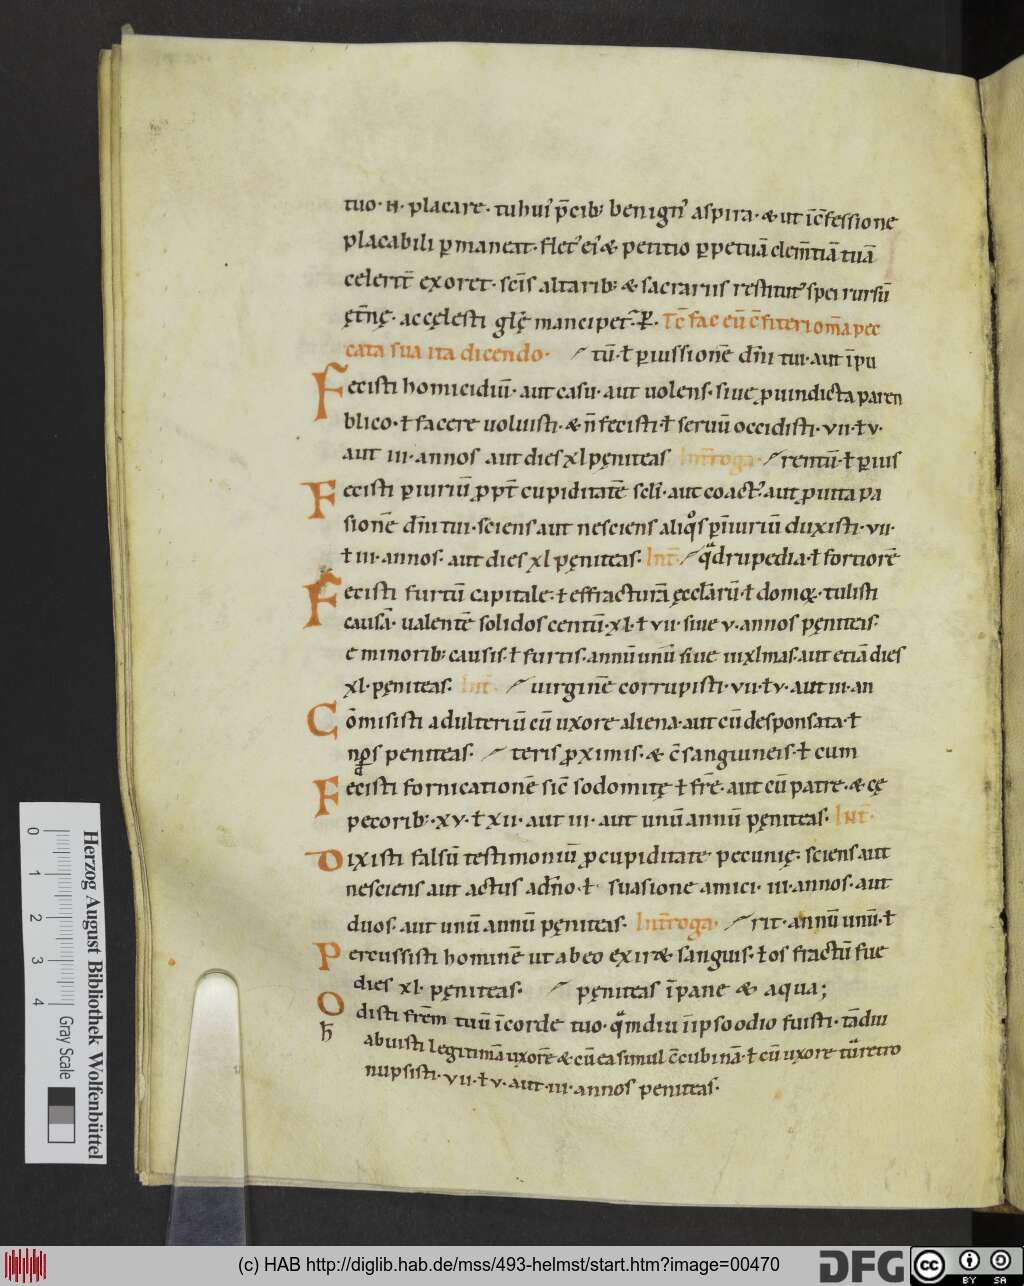 tuo · N · placare · tu hui᾽ p̄cib; benign᾽ aspira · & ut ic̄fessione
placabili ꝑmaneat · flet᾽ ei᾽ & petitio ꝑpetuā clem̄tiā tuā
celerit̄ exoret · sc̄is altarib; & sacrariis restitut᾽ spei rursū
ęt̄nę · ac cęlesti gl̄ę mancipet᾽ · P̄ · Tc̄ fac eū c̄fiteri om̄a pec
cata sua ita dicendo · / tū · ł ꝑ iussionē dn̄i tui · aut īpu
Fecisti homicidiū · aut casu · aut uolens · siue ꝓ uindicta paren
blico · ł facere uoluisti · & n̄ fecisti · ł seruū occidisti · vii · ł v ·
aut iii · annos aut dies xl pęniteas Int̄roga · / rentū · ł ꝑ ius
Fecisti ꝑiuriū ꝓpt̄ cupiditatē scl̄i · aut coact᾽ · aut ꝓ uita pa
sionē dn̄i tui · sciens aut nesciens aliqͦs ꝑiuriū duxisti · vii ·
ł iii · annos · aut dies xl pęniteas · Int̄ · / qͣdrupedia · ł fortiorē
Fecisti furtū capitale · ł effracturā ęccl̄arū · ł domoꝝ · tulisti
causā · ualentē solidos centū · xl · ł vii · siue v · annos pęniteas ·
e minorib; causis · ł furtis · annū unū siue iii xlmas · aut etiā dies
xl · pęniteas · Int̄ · / uirginē corrupisti · vii · ł v · aut iii · an
Cōmisisti adulteriū cū uxore aliena · aut cū desponsata · ł
nos peniteas · / teris ꝓximis · & c̄sanguineis · ł cum
Fecisti fornicationē sic̄ sodomitę ł fr̄e · aut cū patre · & cę
pecorib; · xv · ł xii · aut iii · aut unū annū pęniteas · INT̄ ·
Dixisti falsū testimoniū ꝓ cupiditate pecunię · sciens aut
nesciens aut actus ad n̄o · ł suasione amici · iii · annos · aut
duos · aut unū annū pęniteas · Int̄roga · / rit · annū unū · ł
Percussisti hominē ut ab eo exir& sanguis · ł os fractū fue
dies xl · pęniteas · / pęniteas ī pane & aqua ;
Odisti fr̄em tuū ī corde tuo · qͣmdiu ī ipso odio fuisti · tādiu
h̄
abuisti legitimā uxorē & cū ea simul c̄cubinā · ł cū uxore tuͣ retro
nupsisti · vii · ł v · aut · iii · annos peniteas ·
0 1 2 3 4
Herzog August Bibliothek Wolfenbüttel
Gray Scale
(c) HAB http://diglib.hab.de/mss/493-helmst/start.htm?image=00470
DFG
cc BY SA